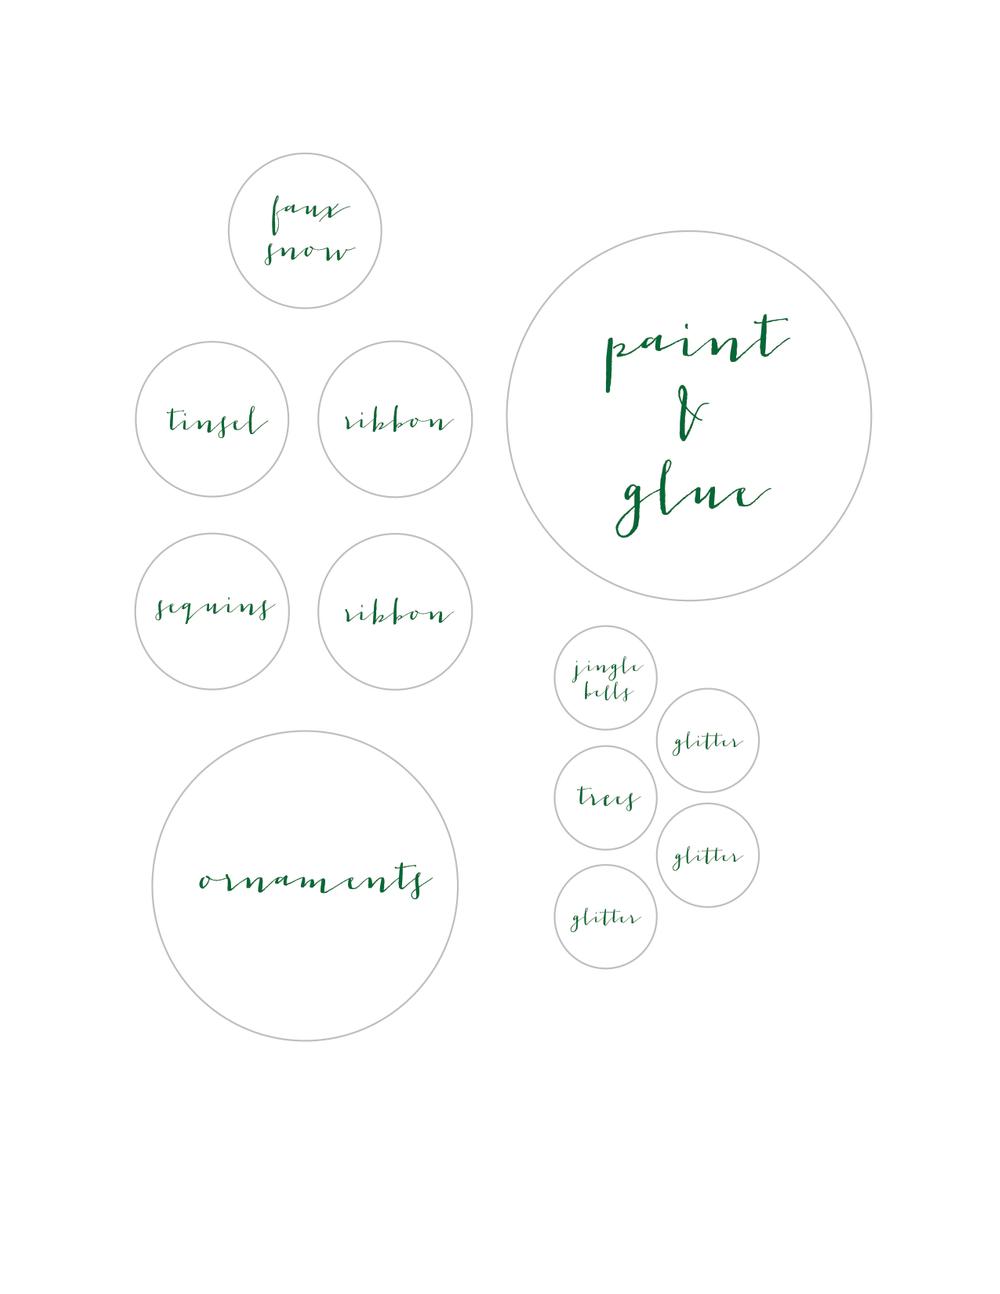 faux
snow
tinsel
ribbon
sequins
ribbon
ornaments
paint
&
glue
jingle
bells
glitter
trees
glitter
glitter